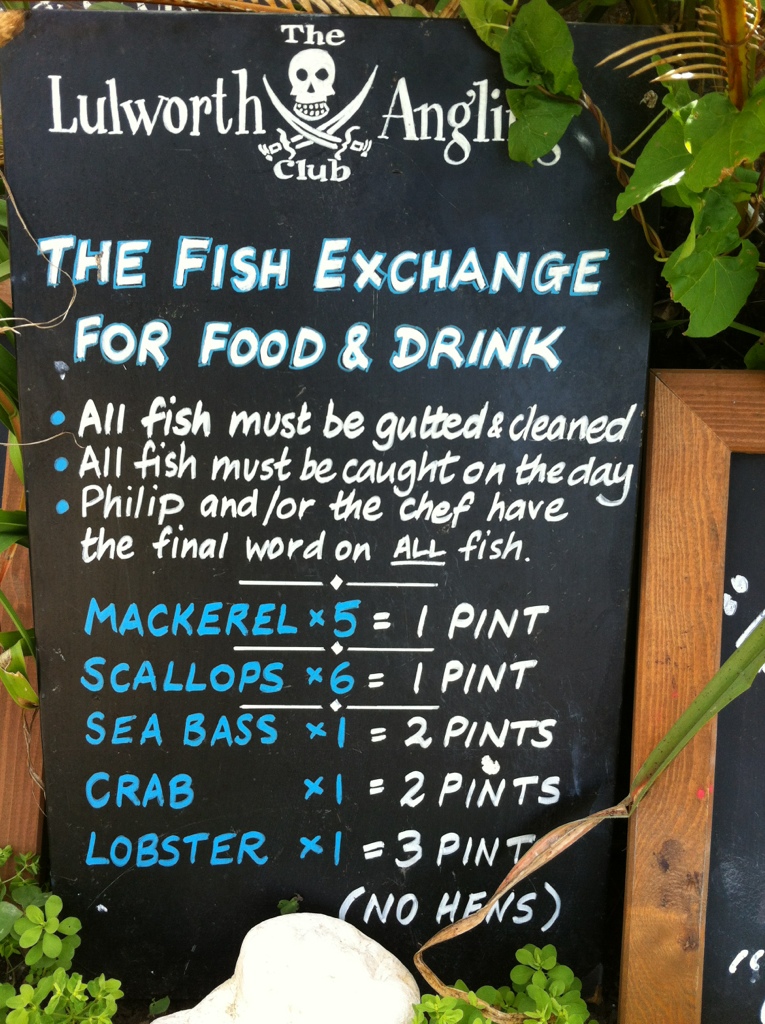 The
Lulworth Angling
Club
THE FISH EXCHANGE
FOR FOOD & DRINK
• All fish must be gutted & cleaned
• All fish must be caught on the day
• Philip and/or the chef have
the final word on ALL fish.
MACKEREL x5 = 1 PINT
SCALLOPS x6 = 1 PINT
SEA BASS x1 = 2 PINTS
CRAB x1 = 2 PINTS
LOBSTER x1 = 3 PINTS
(NO HENS)